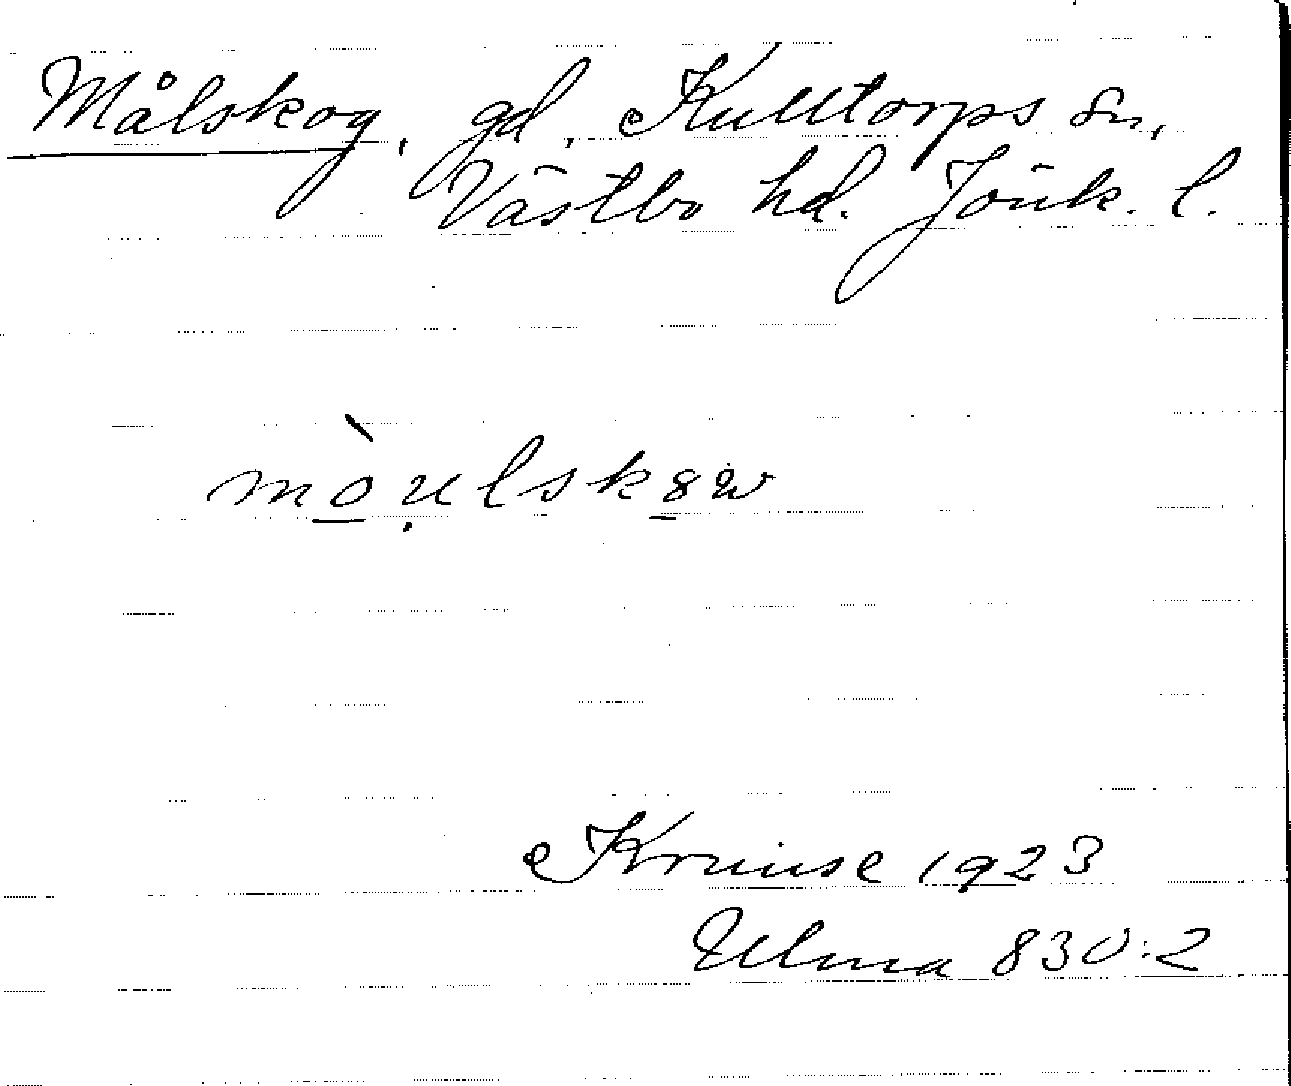 Målskog, gd, Kulltorps sn,
Västbo hd. Jönk. l.
mòụlskɞw
Kruuse 1923
Ulma 830:2